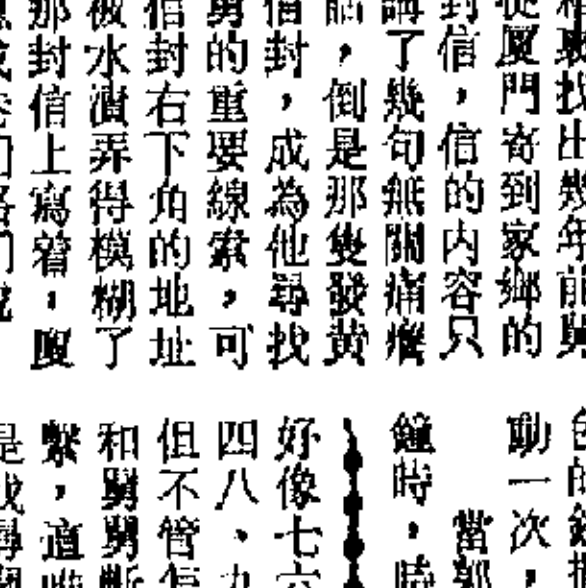 找出幾年前舅
從廈門寄到家鄉的
封信，信的内容只
講了幾句無關痛癢
話，倒是那隻發黃
信封，成為他尋找
舅的重要線索，可
信封右下角的地址
被水漬弄得模糊了
那封信上寫着，廈
的
動一次，
當
鐘時，時
好像七六
四八、九
但不管怎
和舅舅斷
繫，適
是找尋